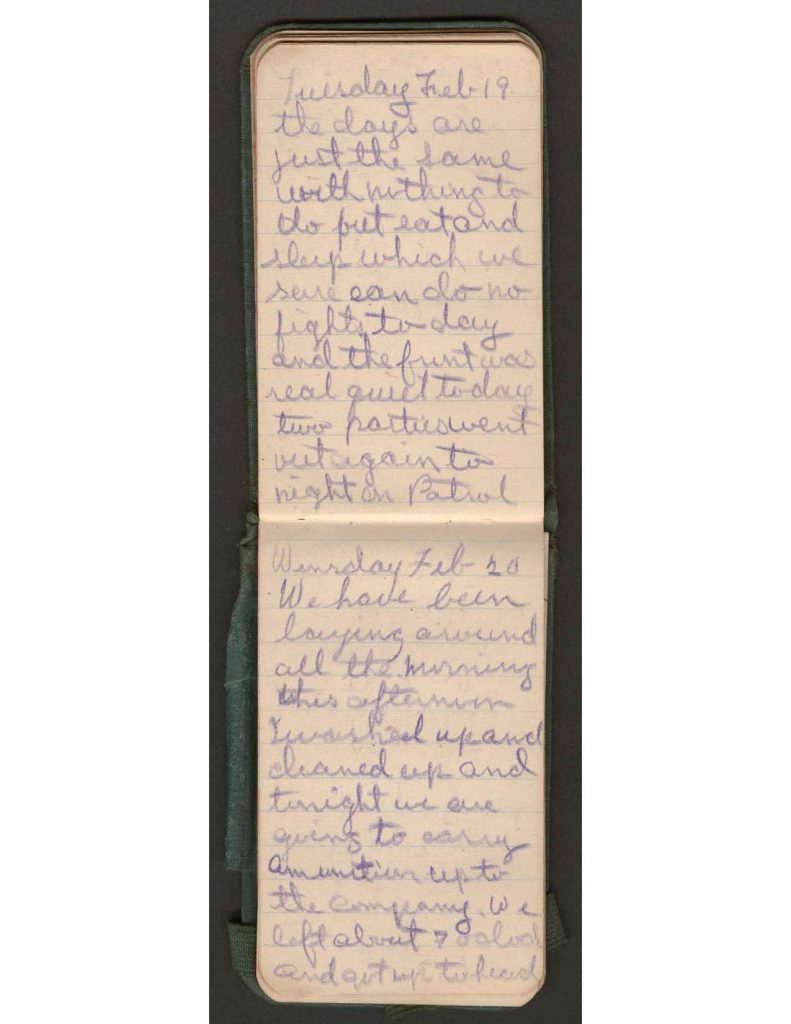 Tuesday Feb 19.
the days are
just the same
with nothing to
do but eat and
sleep which we
sure can do no
fights to day
and the frunt was
real quiet today
two parties went
out again to
night on Patrol
Wensday Feb 20
We have been
laying around
all the morning
this afternoon
I washed up and
cleaned up and
tonight we are
going to carry
amunition up to
the Company. We
left about 7 oclock
and got up to head